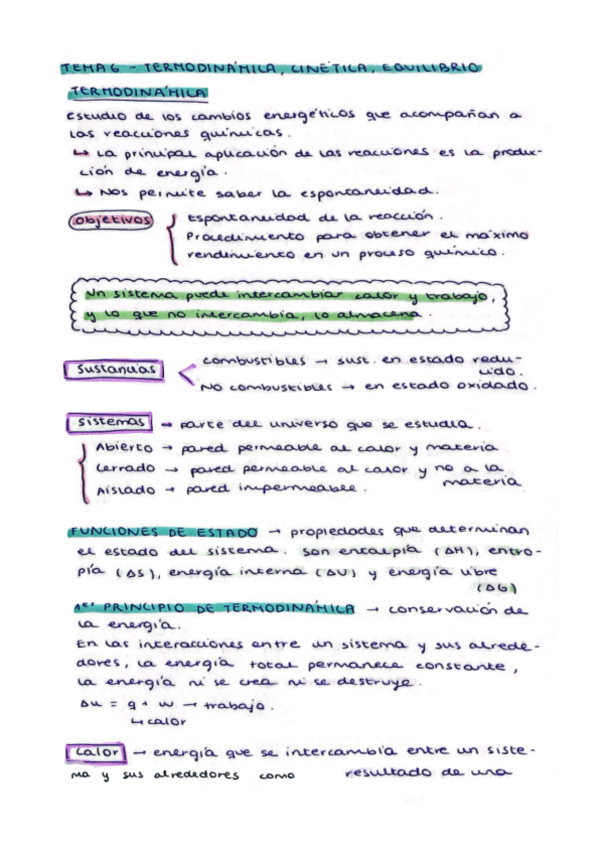 TEMA 6 - TERMODINÁMICA, CINÉTICA, EQUILIBRIO
TERMODINÁMICA
Estudio de los cambios energéticos que acompañan a
las reacciones químicas.
↳ La principal aplicación de las reacciones es la produc-
ción de energía.
↳ Nos permite saber la espontaneidad.
Objetivos
Espontaneidad de la reacción.
Procedimiento para obtener el máximo
rendimiento en un proceso químico.
Un sistema puede intercambiar calor y trabajo,
y lo que no intercambia, lo almacena.
Sustancias
combustibles → sust. en estado redu-
cido.
No combustibles → en estado oxidado.
Sistemas → parte del universo que se estudia.
Abierto → pared permeable al calor y materia
Cerrado → pared permeable al calor y no a la
materia
Aislado → pared impermeable.
FUNCIONES DE ESTADO → propiedades que determinan
el estado del sistema. Son entalpía (ΔH), entro-
pía (ΔS), energía interna (ΔU) y energía libre
(ΔG)
1er PRINCIPIO DE TERMODINÁMICA → conservación de
la energía.
En las interacciones entre un sistema y sus alrede-
dores, la energía total permanece constante,
la energía ni se crea ni se destruye.
Δu = q + w → trabajo.
↳ calor
Calor → energía que se intercambia entre un siste-
ma y sus alrededores como resultado de una